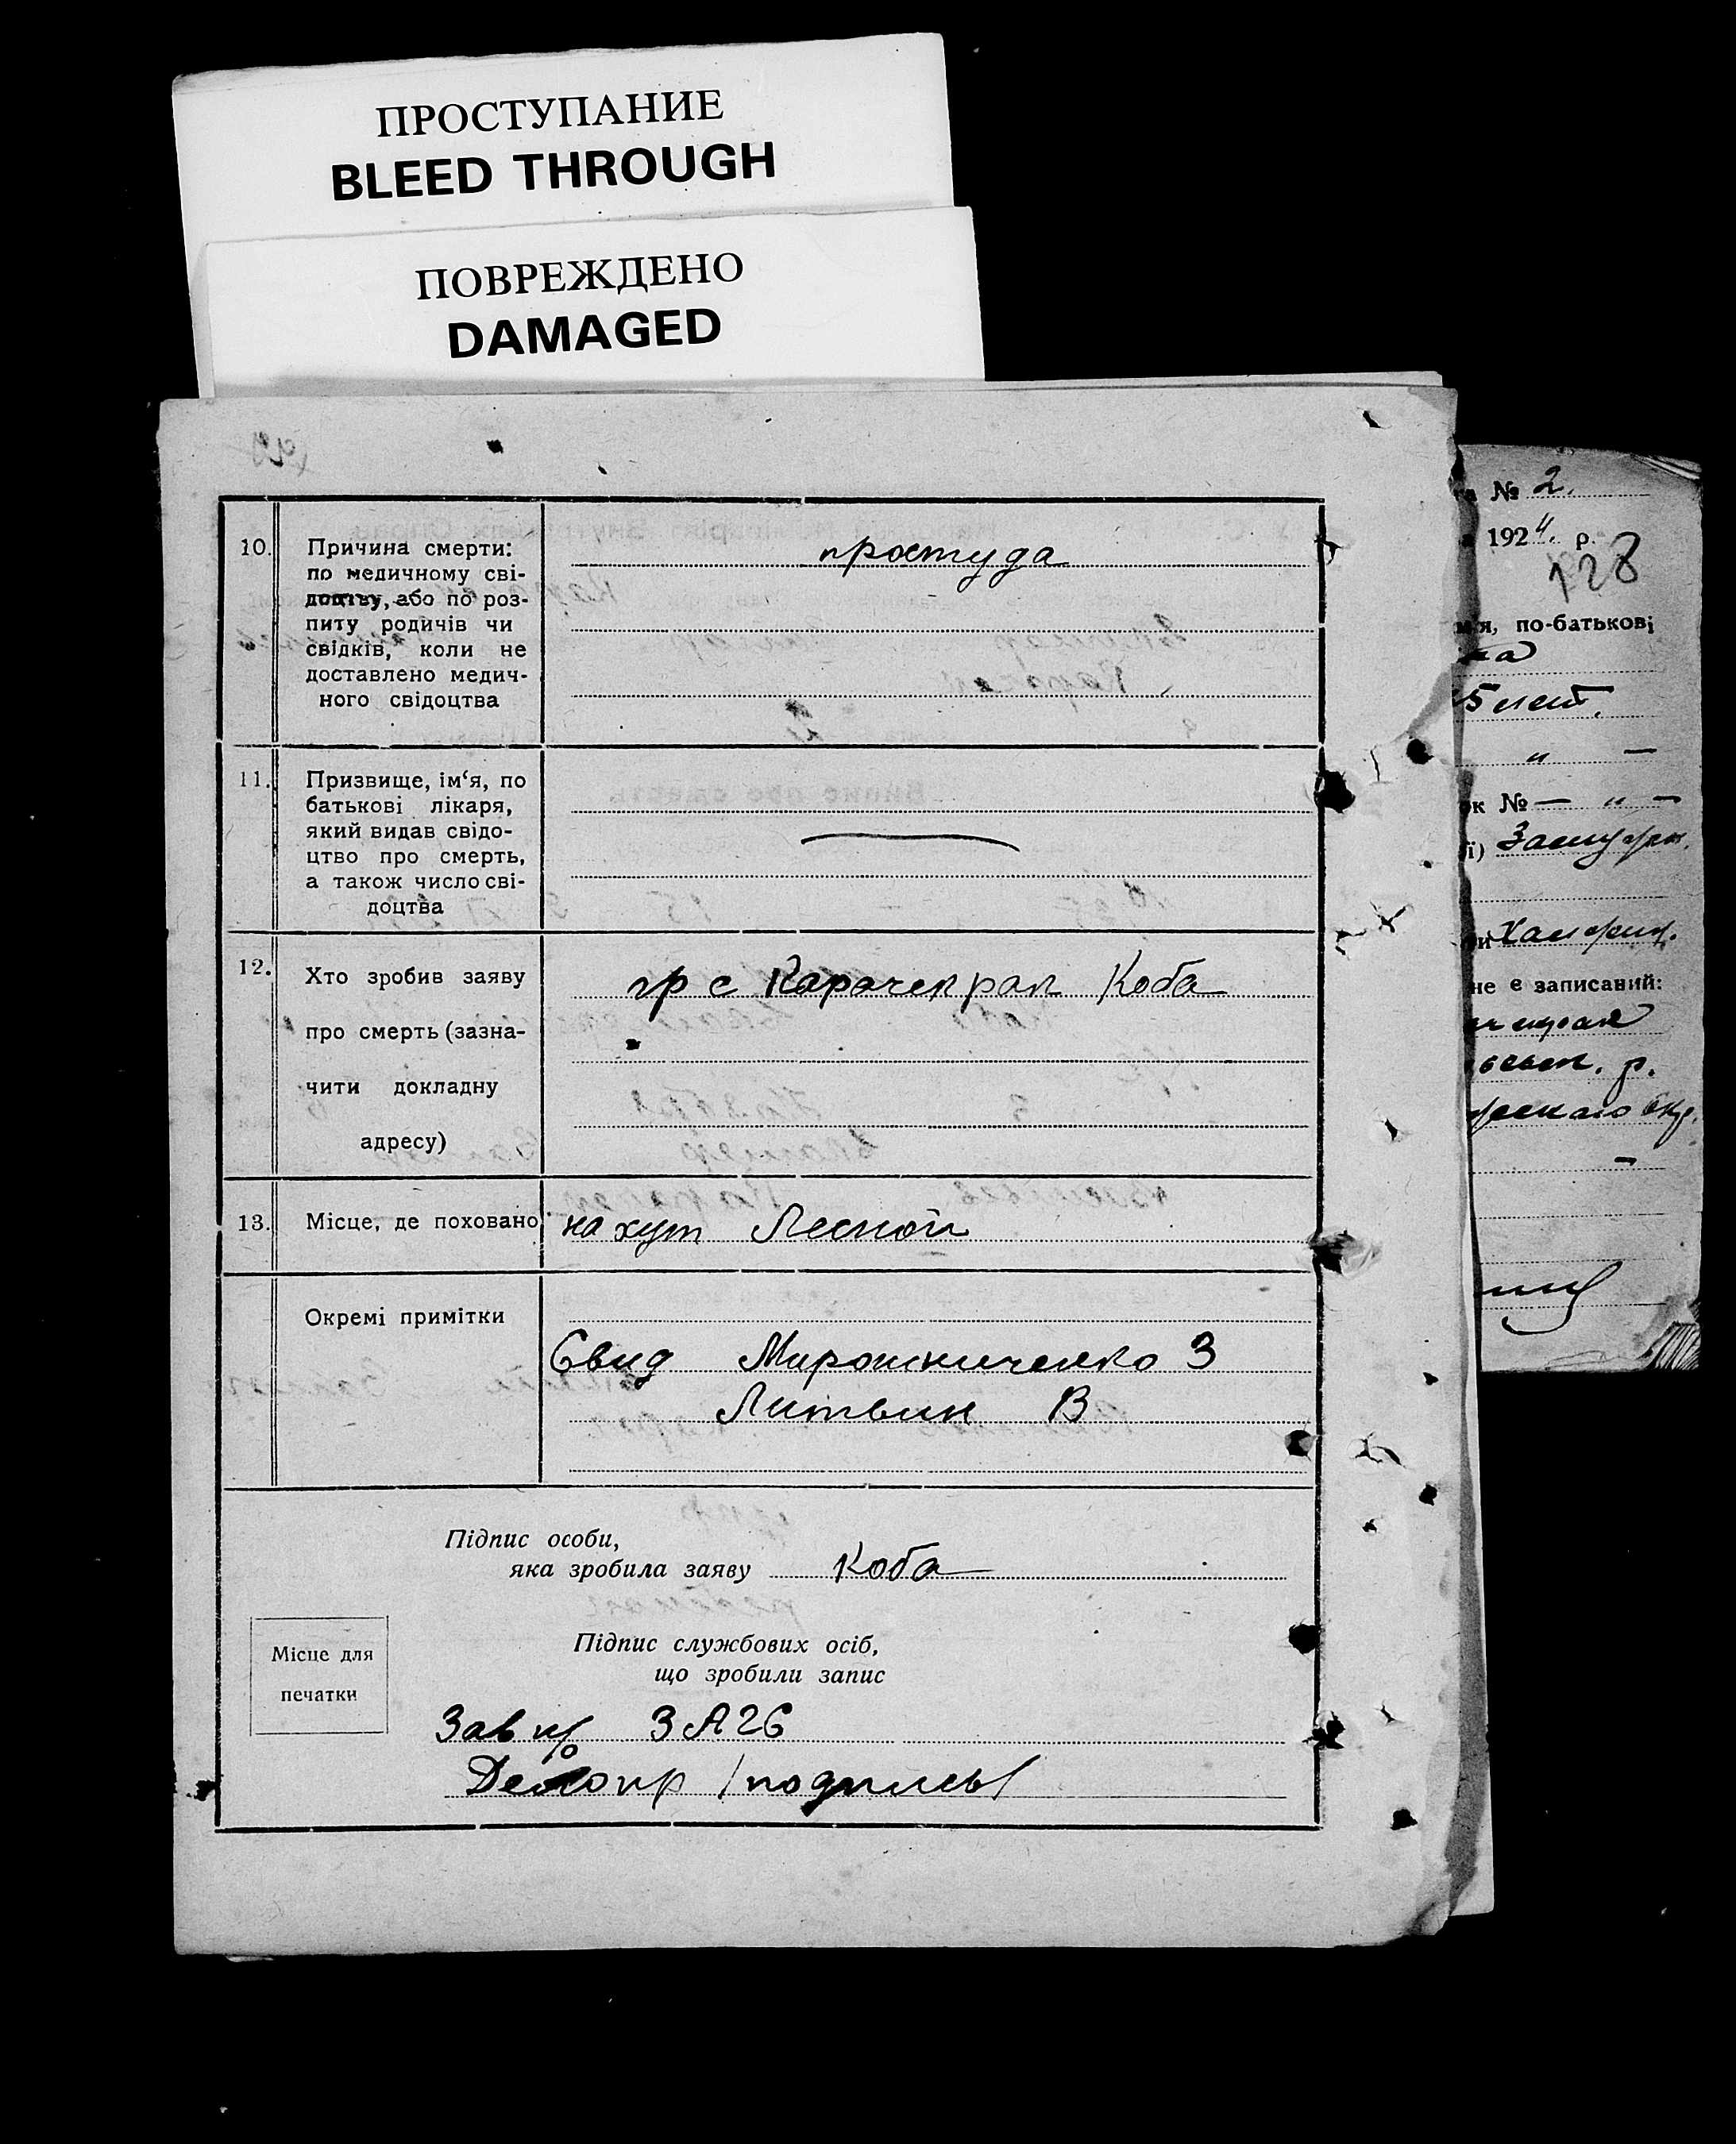 ПРОСТУПАНИЕ
BLEED THROUGH
ПОВРЕЖДЕНО
DAMAGED
10.
Причина смерти:
по медичному сві-
доцтву, або по роз-
питу родичів чи
свідків, коли не
доставлено медич-
ного свідоцтва
простуда
11.
Призвище, ім‘я, по
батькові лікаря,
який видав свідо-
цтво про смерть,
а також число сві-
доцтва
12.
Хто зробив заяву
про смерть (зазна-
чити докладну
адресу)
гр с Карачекрак Коба
13.
Місце, де поховано
на хут Лесной
Окремі примітки
Свид Мирошниченко З
Литвин В
Підпис особи,
яка зробила заяву Коба
Місце для
печатки
Підпис службових осіб,
що зробили запис
Зав п/о ЗАГС
/подпись/
№ 2.
1924. р.
128
по-батькові
5 лет.
"
№ — " —
ї)
не є записаний:
р.